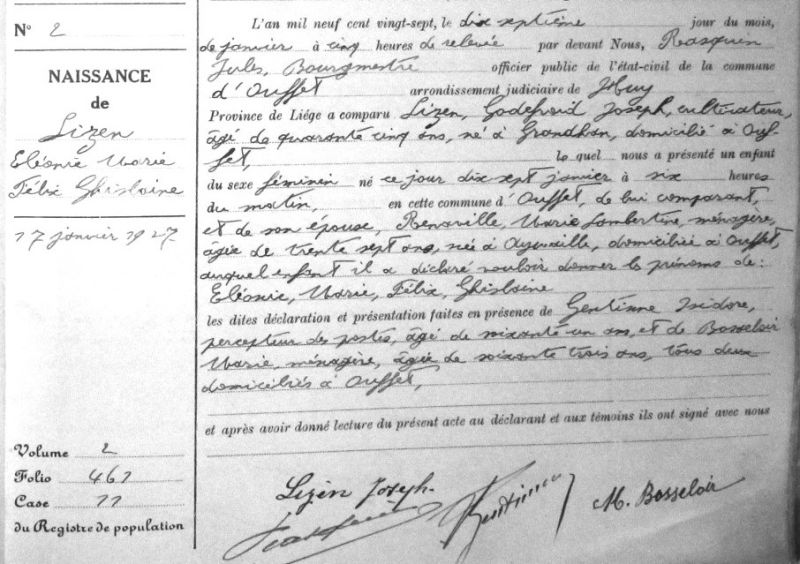 N° 2
NAISSANCE
de
Lizen
Eléonie Marie
Félix Ghislaine
17 janvier 1927
Volume 2
Folio 461
Case 11
du Registre de population
L'an mil neuf cent vingt-sept, le dix septième jour du mois,
de janvier à cinq heures de relevée par devant Nous, Rasquin
Jules, Bourgmestre officier public de l'état-civil de la commune
d'Ouffet arrondissement judiciaire de Huy
Province de Liége a comparu Lizen, Godefroid Joseph, cultivateur,
âgé de quarante cinq ans, né à Grandhan, domicilié à Ouf-
fet, le quel nous a présenté un enfant
du sexe féminin né ce jour dix sept janvier à six heures
du matin, en cette commune d'Ouffet, de lui comparant,
et de son épouse, Renaville, Marie Lambertine, ménagère,
âgée de trente sept ans, née à Aywaille, domiciliée à Ouffet,
auquel enfant il a déclaré vouloir donner les prénoms de :
Eléonie, Marie, Félix, Ghislaine
les dites déclaration et présentation faites en présence de Gentinne Isidore,
percepteur des postes, âgé de soixante un ans, et de Bosseloir
Marie, ménagère, âgée de soixante trois ans, tous deux
domiciliés à Ouffet,
et après avoir donné lecture du présent acte au déclarant et aux témoins ils ont signé avec nous
Lizen Joseph.
M. Bosseloir